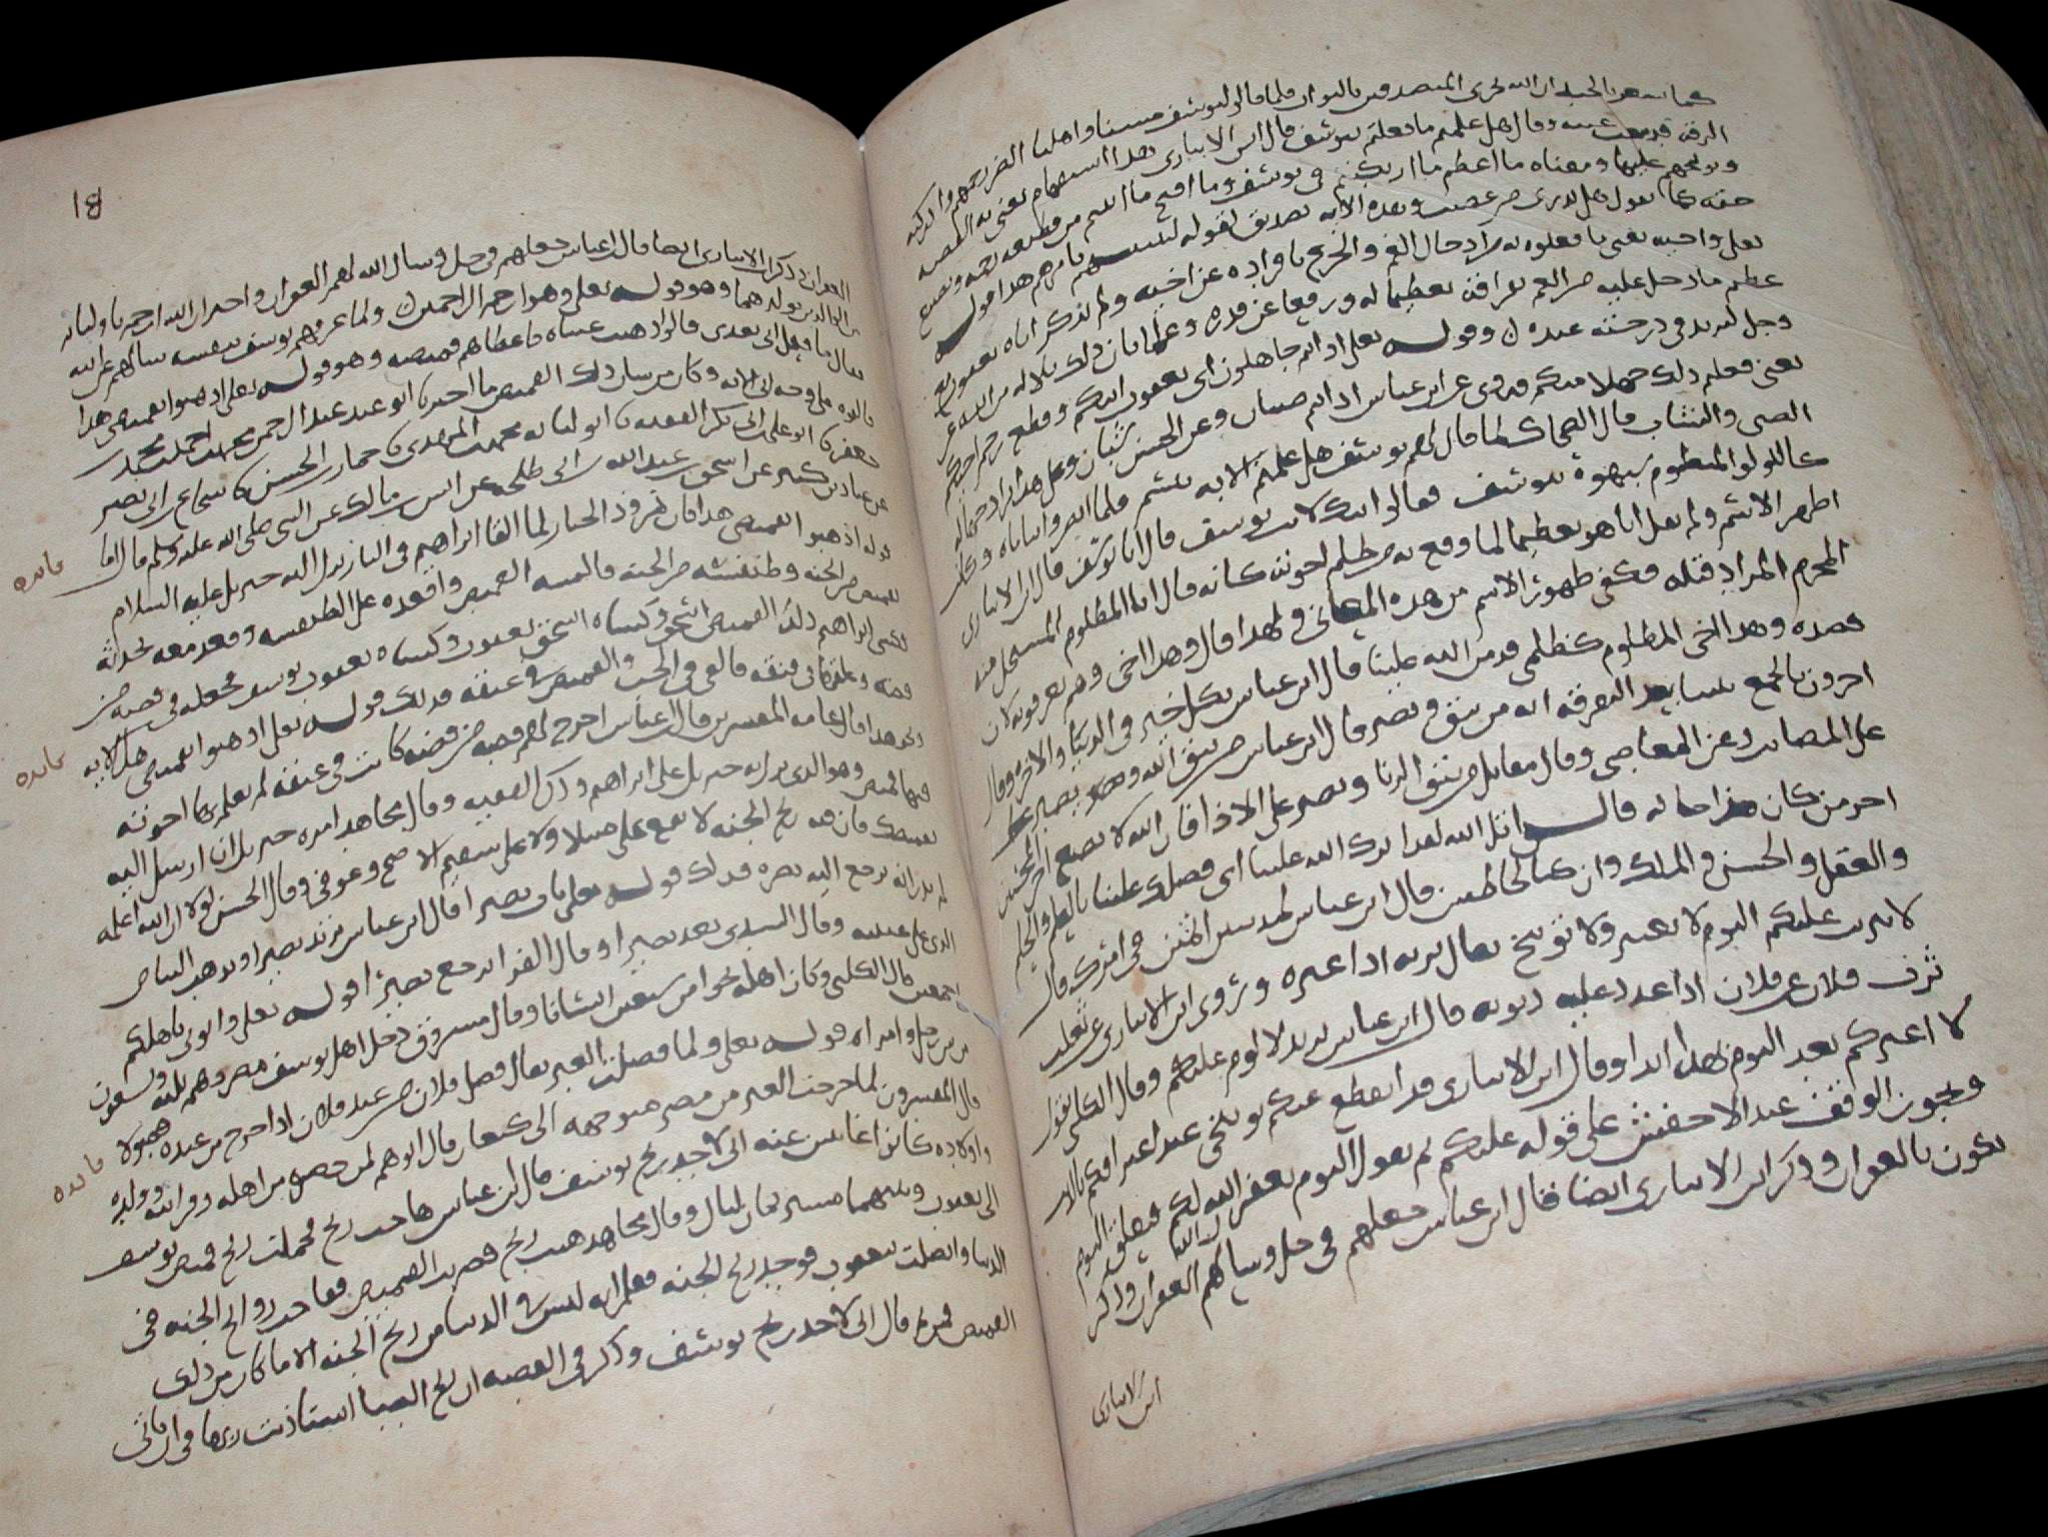 كما سعر بالحيله ان الله يجزي المتصدقين بالثواب فلما قالوا ليوسف مسنا واهلنا الضر رحمهم وادركته
الرقه فدمعت عينه وقال هل علمتم ما فعلتم بيوسف قال ابن الانباري هذا استفهام يعنى به
وتوبيخهم عليها ومعناه ما اعظم ما ارتكبتم في يوسف وما اقبح ما اتيتم من قطيعه رحمه وتضييع
حقه كما تقول هل تدري من عصيت وهذه الايه تصديق لقوله لتنبئنهم بامرهم هذا قوله
تعلى واخيه يعنى ما فعلوه به من ادخال الغم والجزع بافراده عن اخيه ولم يذكر اباه يعقوب مع
عظم ما دخل عليه من الغم بفراقه تعظيما له ورفعا من قدره وعلما بان ذلك بلا له من الله عز
وجل ليزيد في درجته عنده وقوله تعلى اذ انتم جاهلون اى بعقوق ابيكم وقطع رحم اخيكم
يعنى فعلتم ذلك جهلا منكم فروى عن ابن عباس اذ انتم صبيان وعن الحسن شبان وعلى هذا اراد جهاله
الصبى والشباب قال الضحاك لما قال لهم يوسف هل علمتم الايه تبسم فلما ابصروا ثناياه وكانت
كاللولو المنظوم شبهوه بيوسف فقالوا ائنك لانت يوسف قال انا يوسف قال ابن الانباري
اظهر الاسم ولم يقل انا هو تعظيما لما وقع به من ظلم اخوته كانه قال انا المظلوم المستحل منه
المحرم المراد قتله فكفى ظهور الاسم من هذه المعانى ولهذا قال وهذا اخى وهم يعرفونه لان
قصده وهذا اخى المظلوم كظلمى قد من الله علينا قال ابن عباس بكل خير في الدنيا والاخره وقال
اخرون بالجمع بيننا بعد التفرقه انه من يتق ويصبر قال ابن عباس من يتق الله ويصبر
على المصايب وعن المعاصى وقال مقاتل من يتق الزنا ويصبر على الاذا فان الله لا يضيع اجر المحسنين
اجر من كان هذا حاله قالوا تالله لقد اثرك الله علينا اى فضلك علينا بالعلم والحلم
والعقل والحسن والملك وان كنا لخاطئين قال ابن عباس لمذنبين اثمين في امرك قال
لا تثريب عليكم اليوم لا تعيير ولا توبيخ يقال ثربه اذا عيره وروى ابن الانباري عن ثعلب
ثرب فلان على فلان اذا عدد عليه ذنوبه قال ابن عباس يريد لا لوم عليكم وقال الكلبى يقول
لا اعيركم بعد اليوم بهذا ابدا وقال ابن الانباري قد انقطع عنكم توبيخى عند اعترافكم بالذنب
ويجوز الوقف عند الاخفش على قوله عليكم ثم يقول اليوم يغفر الله لكم فيعلق اليوم
بالغفران وذكر ابن الانباري ايضا فقال ابن عباس جعلهم في حل وسال الله لهم الغفران وذكر
ابن الانباري
18
الغفران وذكر ابن الانباري ايضا قال ابن عباس جعلهم في حل وسال الله لهم الغفران واخبر ان الله ارحم باوليائه
من الوالدين بولدهما وهو قوله تعلى وهو ارحم الراحمين ولما عرفهم يوسف نفسه سالهم عن ابيه
فقال ما فعل ابى بعدى قالوا ذهبت عيناه فاعطاهم قميصه وهو قوله تعلى اذهبوا بقميصى هذا
فالقوه على وجه ابى الايه وكان من شان ذلك القميص ما اخبرنا ابو عبد عبد الرحمن محمد بن احمد بن محمد بن
جعفر نا ابو على بن ابى بكر الفقيه نا ابو لبابه محمد بن المهدى نا عمار بن الحسن نا شجاع بن ابى نصر
عن عباد بن كثير عن اسحق بن عبد الله بن ابى طلحه عن انس بن مالك عن النبى صلى الله عليه وسلم قال اما
قوله اذهبوا بقميصى هذا فان نمرود الجبار لما القا ابراهيم في النار نزل اليه جبريل عليه السلام
بقميص من الجنه وطنفسه من الجنه فالبسه القميص واقعده على الطنفسه وقعد معه يحدثه
فكسى ابراهيم ذلك القميص اسحق وكساه اسحق يعقوب وكساه يعقوب يوسف فجعله في قصبه من
فضه وعلقها في عنقه فالقى في الجب والقميص في عنقه فذلك قوله تعلى اذهبوا بقميصى هذا الايه
ونحو هذا قال عامه المفسرين قال ابن عباس اخرج لهم قصبه من فضه كانت في عنقه لم يعلم بها اخوته
فيها قميص وهو الذى نزل به جبريل على ابراهيم وذكر القصه وقال مجاهد امره جبريل ان ارسل اليه
بقميصك فان فيه ريح الجنه لا يقع على مبتلا ولا على سقيم الا صح وعوفى وقال الحسن لولا ان الله اعلمه
لم يدر انه يرجع اليه بصره فذلك قوله تعلى يات بصيرا قال ابن عباس يرتد بصيرا ويذهب البياض
الذى على عينيه وقال السدى يعد بصيرا وقال الفرا يرجع بصيرا قوله تعلى واتونى باهلكم
اجمعين قال الكلبى وكان اهله نحوا من سبعين انسانا وقال مسروق دخل اهل يوسف مصر وهم ثلثه وتسعون
من بين رجل وامراه قوله تعلى ولما فصلت العير يقال فصل فلان من عند فلان اذا خرج من عنده فصولا
قال المفسرون لما خرجت العير من مصر متوجهه الى كنعان قال ابوهم لمن حضره من اهله وقرابته وولد ولده
واولاده كانوا غائبين عنه انى لاجد ريح يوسف قال ابن عباس هاجت ريح فحملت ريح قميص يوسف
الى يعقوب وبينهما مسيره ثمان ليال وقال مجاهد هبت ريح فضربت القميص ففاحت روائح الجنه في
الدنيا واتصلت بيعقوب فوجد ريح الجنه فعلم انه ليس في الدنيا من ريح الجنه الا ما كان من ذلك
القميص فمن ثم قال انى لاجد ريح يوسف وذكر في القصه ان ريح الصبا استاذنت ربها في ان تاتى
فايده
فايده
فايده